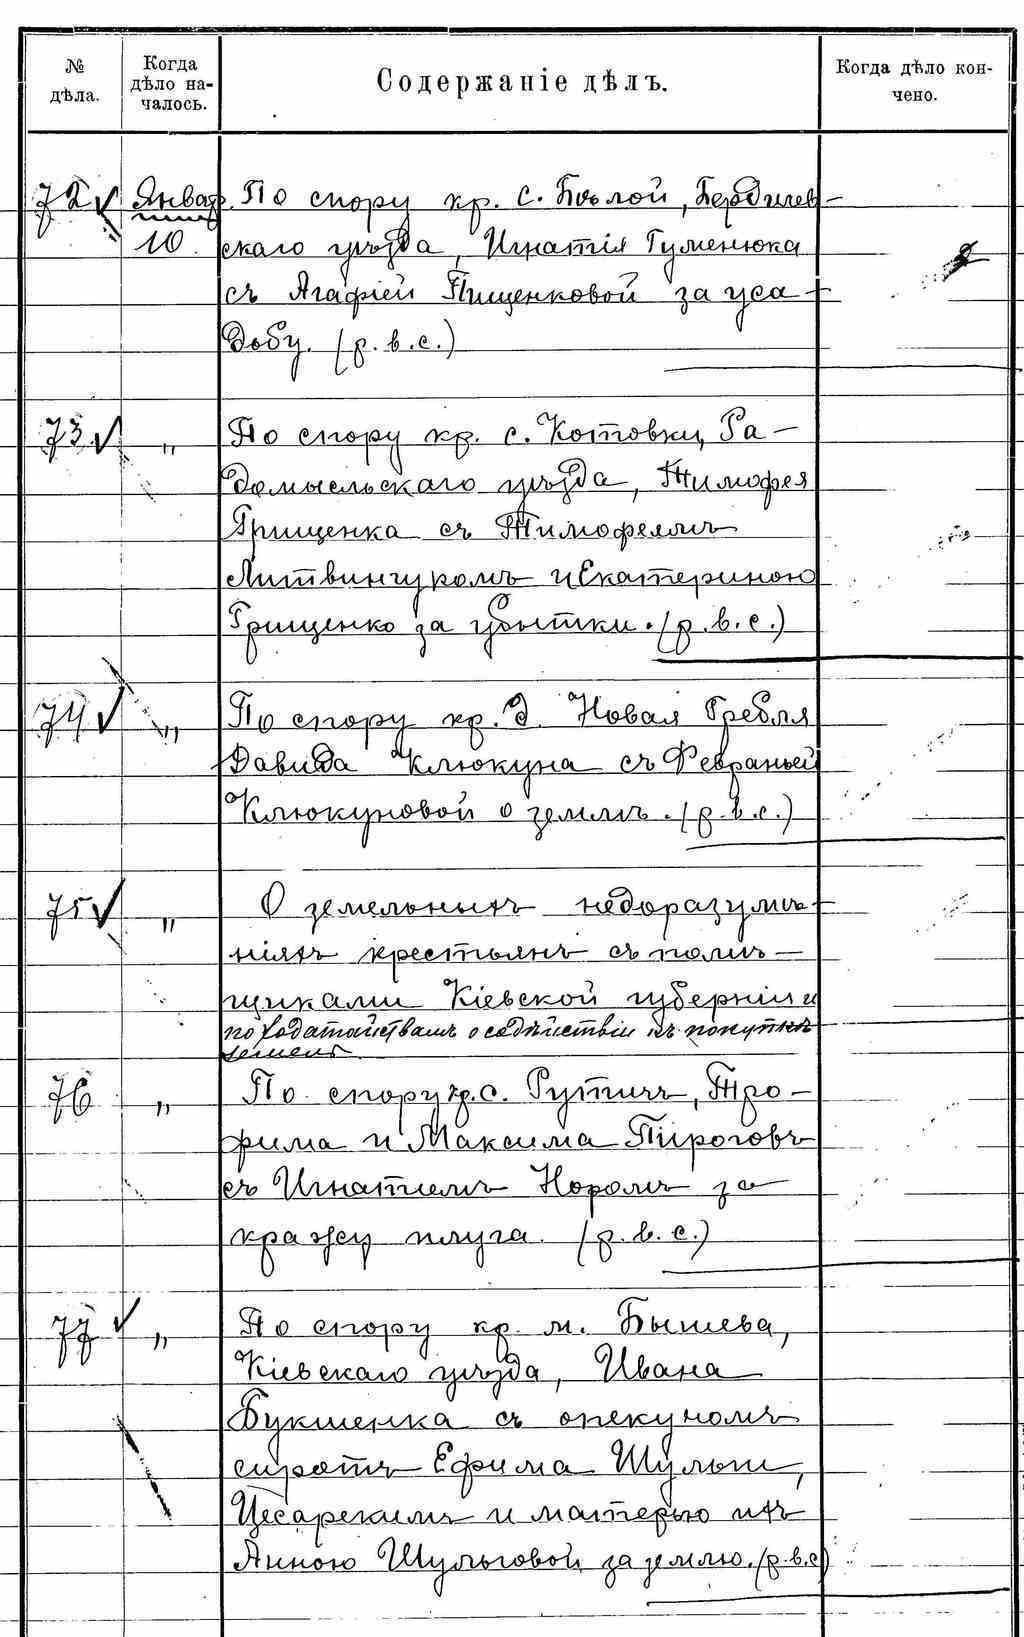 № дѣла. Когда дѣло началось. Содержаніе дѣлъ. Когда дѣло кончено.
72 Январ. По спору кр. с. Бѣлой, Бердичев-
10. скаго уѣзда, Игнатія Гуменюка
съ Агафіей Пищенковой за уса-
дьбу. (р. в. с.)
73 „ По спору кр. с. Котовки, Ра-
домысльскаго уѣзда, Тимофея
Грищенка съ Тимофеемъ
Литвинчукомъ и Екатериною
Грищенко за убытки. (р. в. с.)
74 „ По спору кр. д. Новая Гребля
Давида Клюкуна съ Февраньей
Клюкуновой о землѣ. (р. в. с.)
75 „ О земельныхъ недоразумѣ-
ніяхъ крестьянъ съ помѣ-
щиками Кіевской губерніи и
по ходатайствамъ о содѣйствіи къ покупкѣ
земель
76 „ По спору кр. с. Рутичъ, Тро-
фима и Максима Пироговъ
съ Игнатіемъ Норомъ за
кражу плуга. (р. в. с.)
77 „ По спору кр. м. Бышева,
Кіевскаго уѣзда, Ивана
Букшенка съ опекуномъ
сиротъ Ефима Шульги,
Цесарскимъ и матерью ихъ
Анною Шульговой за землю. (р. в. с)